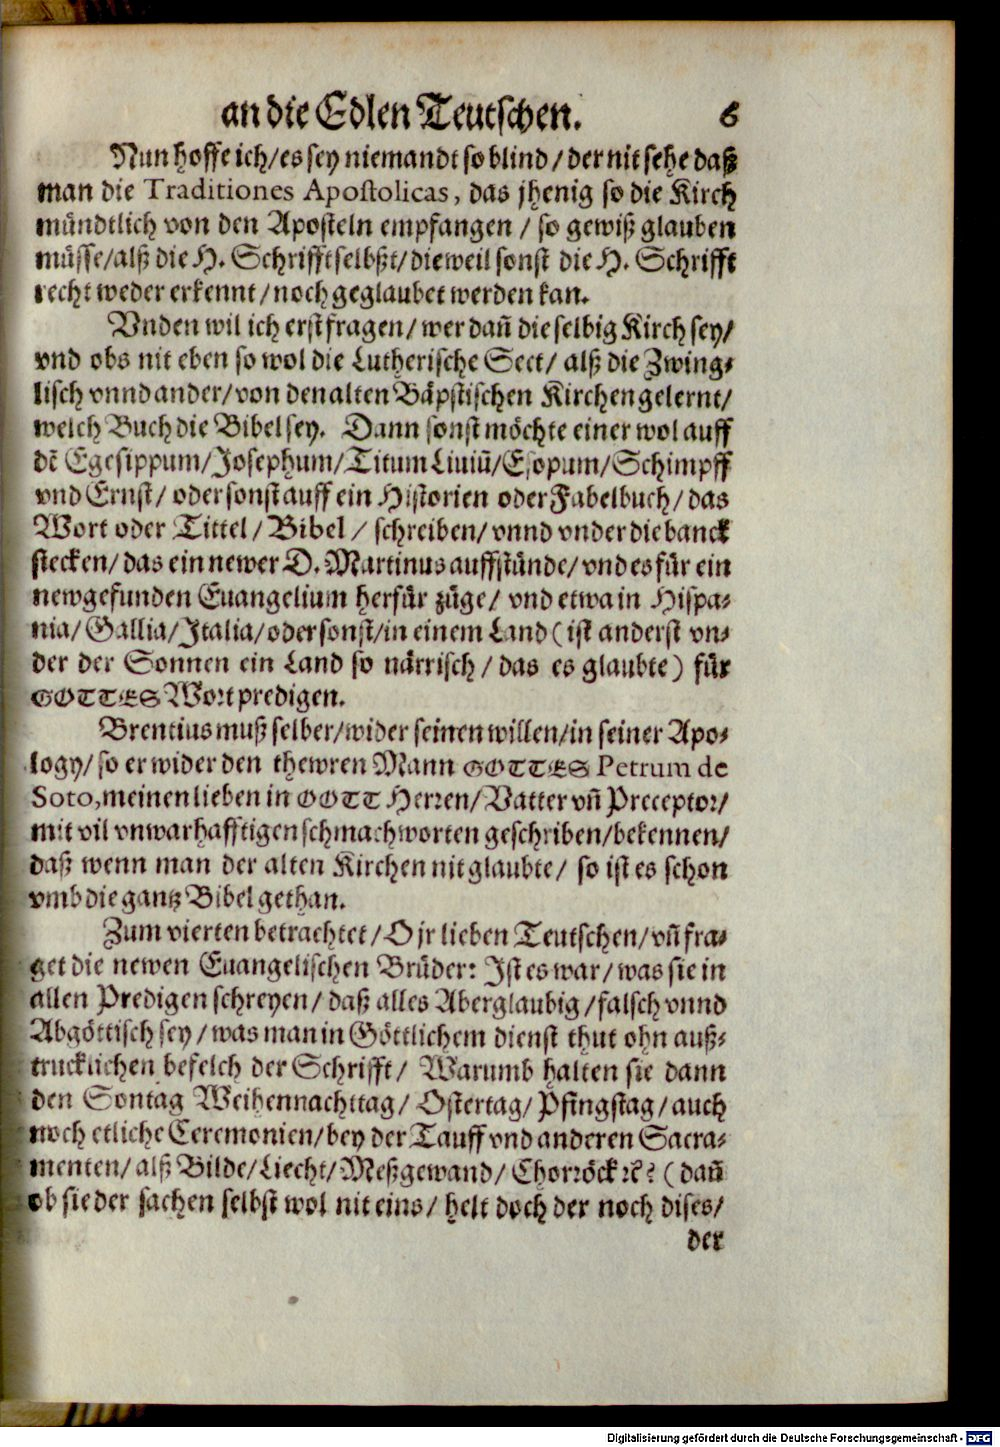 an die Edlen Teutschen. 6
Nun hoffe ich/es sey niemandt so blind/der nit sehe daß
man die Traditiones Apostolicas, das jhenig so die Kirch
mündtlich von den Aposteln empfangen / so gewiß glauben
müsse/alß die H. Schrifft selbst/dieweil sonst die H. Schrifft
recht weder erkennt/noch geglaubet werden kan.
Vnden wil ich erst fragen/wer dañ die selbig Kirch sey/
vnd obs nit eben so wol die Lutherische Sect/ alß die Zwing-
lisch vnnd ander/von den alten Bäpstischen Kirchen gelernt/
welch Buch die Bibel sey. Dann sonst möchte einer wol auff
dẽ Egesippum/Josephum/Titum Liuiũ/Esopum/Schimpff
vnd Ernst/ oder sonst auff ein Historien oder Fabelbuch/das
Wort oder Tittel/Bibel/ schreiben/vnnd vnder die banck
stecken/das ein newer D. Martinus auffstünde/vnd es für ein
newgefunden Euangelium herfür züge/ vnd etwa in Hispa-
nia/Gallia/Italia/oder sonst/in einem Land (ist anderst vn-
der der Sonnen ein Land so närrisch/das es glaubte) für
GOTTES Wort predigen.
Brentius muß selber/wider seinen willen/in seiner Apo-
logy/so er wider den thewren Mann GOTTES Petrum de
Soto,meinen lieben in GOTT Herren/Vatter vñ Preceptor/
mit vil vnwarhafftigen schmachworten geschriben/bekennen/
daß wenn man der alten Kirchen nit glaubte/ so ist es schon
vmb die gantz Bibel gethan.
Zum vierten betrachtet/O jr lieben Teutschen/vñ fra-
get die newen Euangelischen Brüder: Ist es war/was sie in
allen Predigen schreyen/daß alles Aberglaubig/falsch vnnd
Abgöttisch sey/was man in Göttlichem dienst thut ohn auß-
trucklichen befelch der Schrifft/ Warumb halten sie dann
den Sontag Weihennachttag/ Ostertag/Pfingstag/auch
noch etliche Ceremonien/bey der Tauff vnd anderen Sacra-
menten/alß Bilde/Liecht/Meßgewand/Chorröck ꝛc? (dañ
ob sie der sachen selbst wol nit eins/ helt doch der noch dises/
der
Digitalisierung gefördert durch die Deutsche Forschungsgemeinschaft - DFG